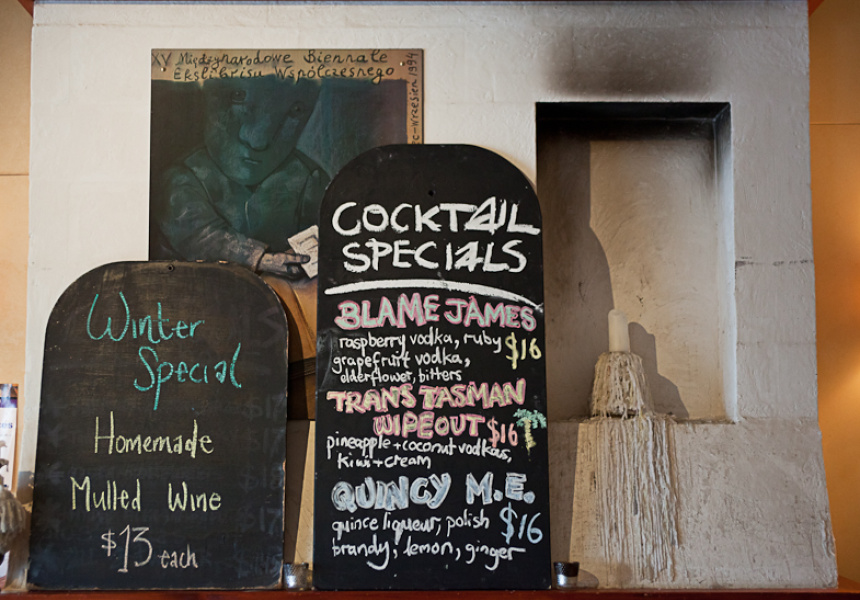 XV Międzynarodowe Biennale
Ekslibrisu Współczesnego
-Wrzesień 1994
Winter
Special
Homemade
Mulled Wine
$13 each
COCKTAIL
SPECIALS
BLAME JAMES
raspberry vodka, ruby
grapefruit vodka, $16
elderflower, bitters
TRANS TASMAN
WIPEOUT $16
pineapple + coconut vodkas,
kiwi + cream
QUINCY M.E.
quince liqueur, polish $16
brandy, lemon, ginger